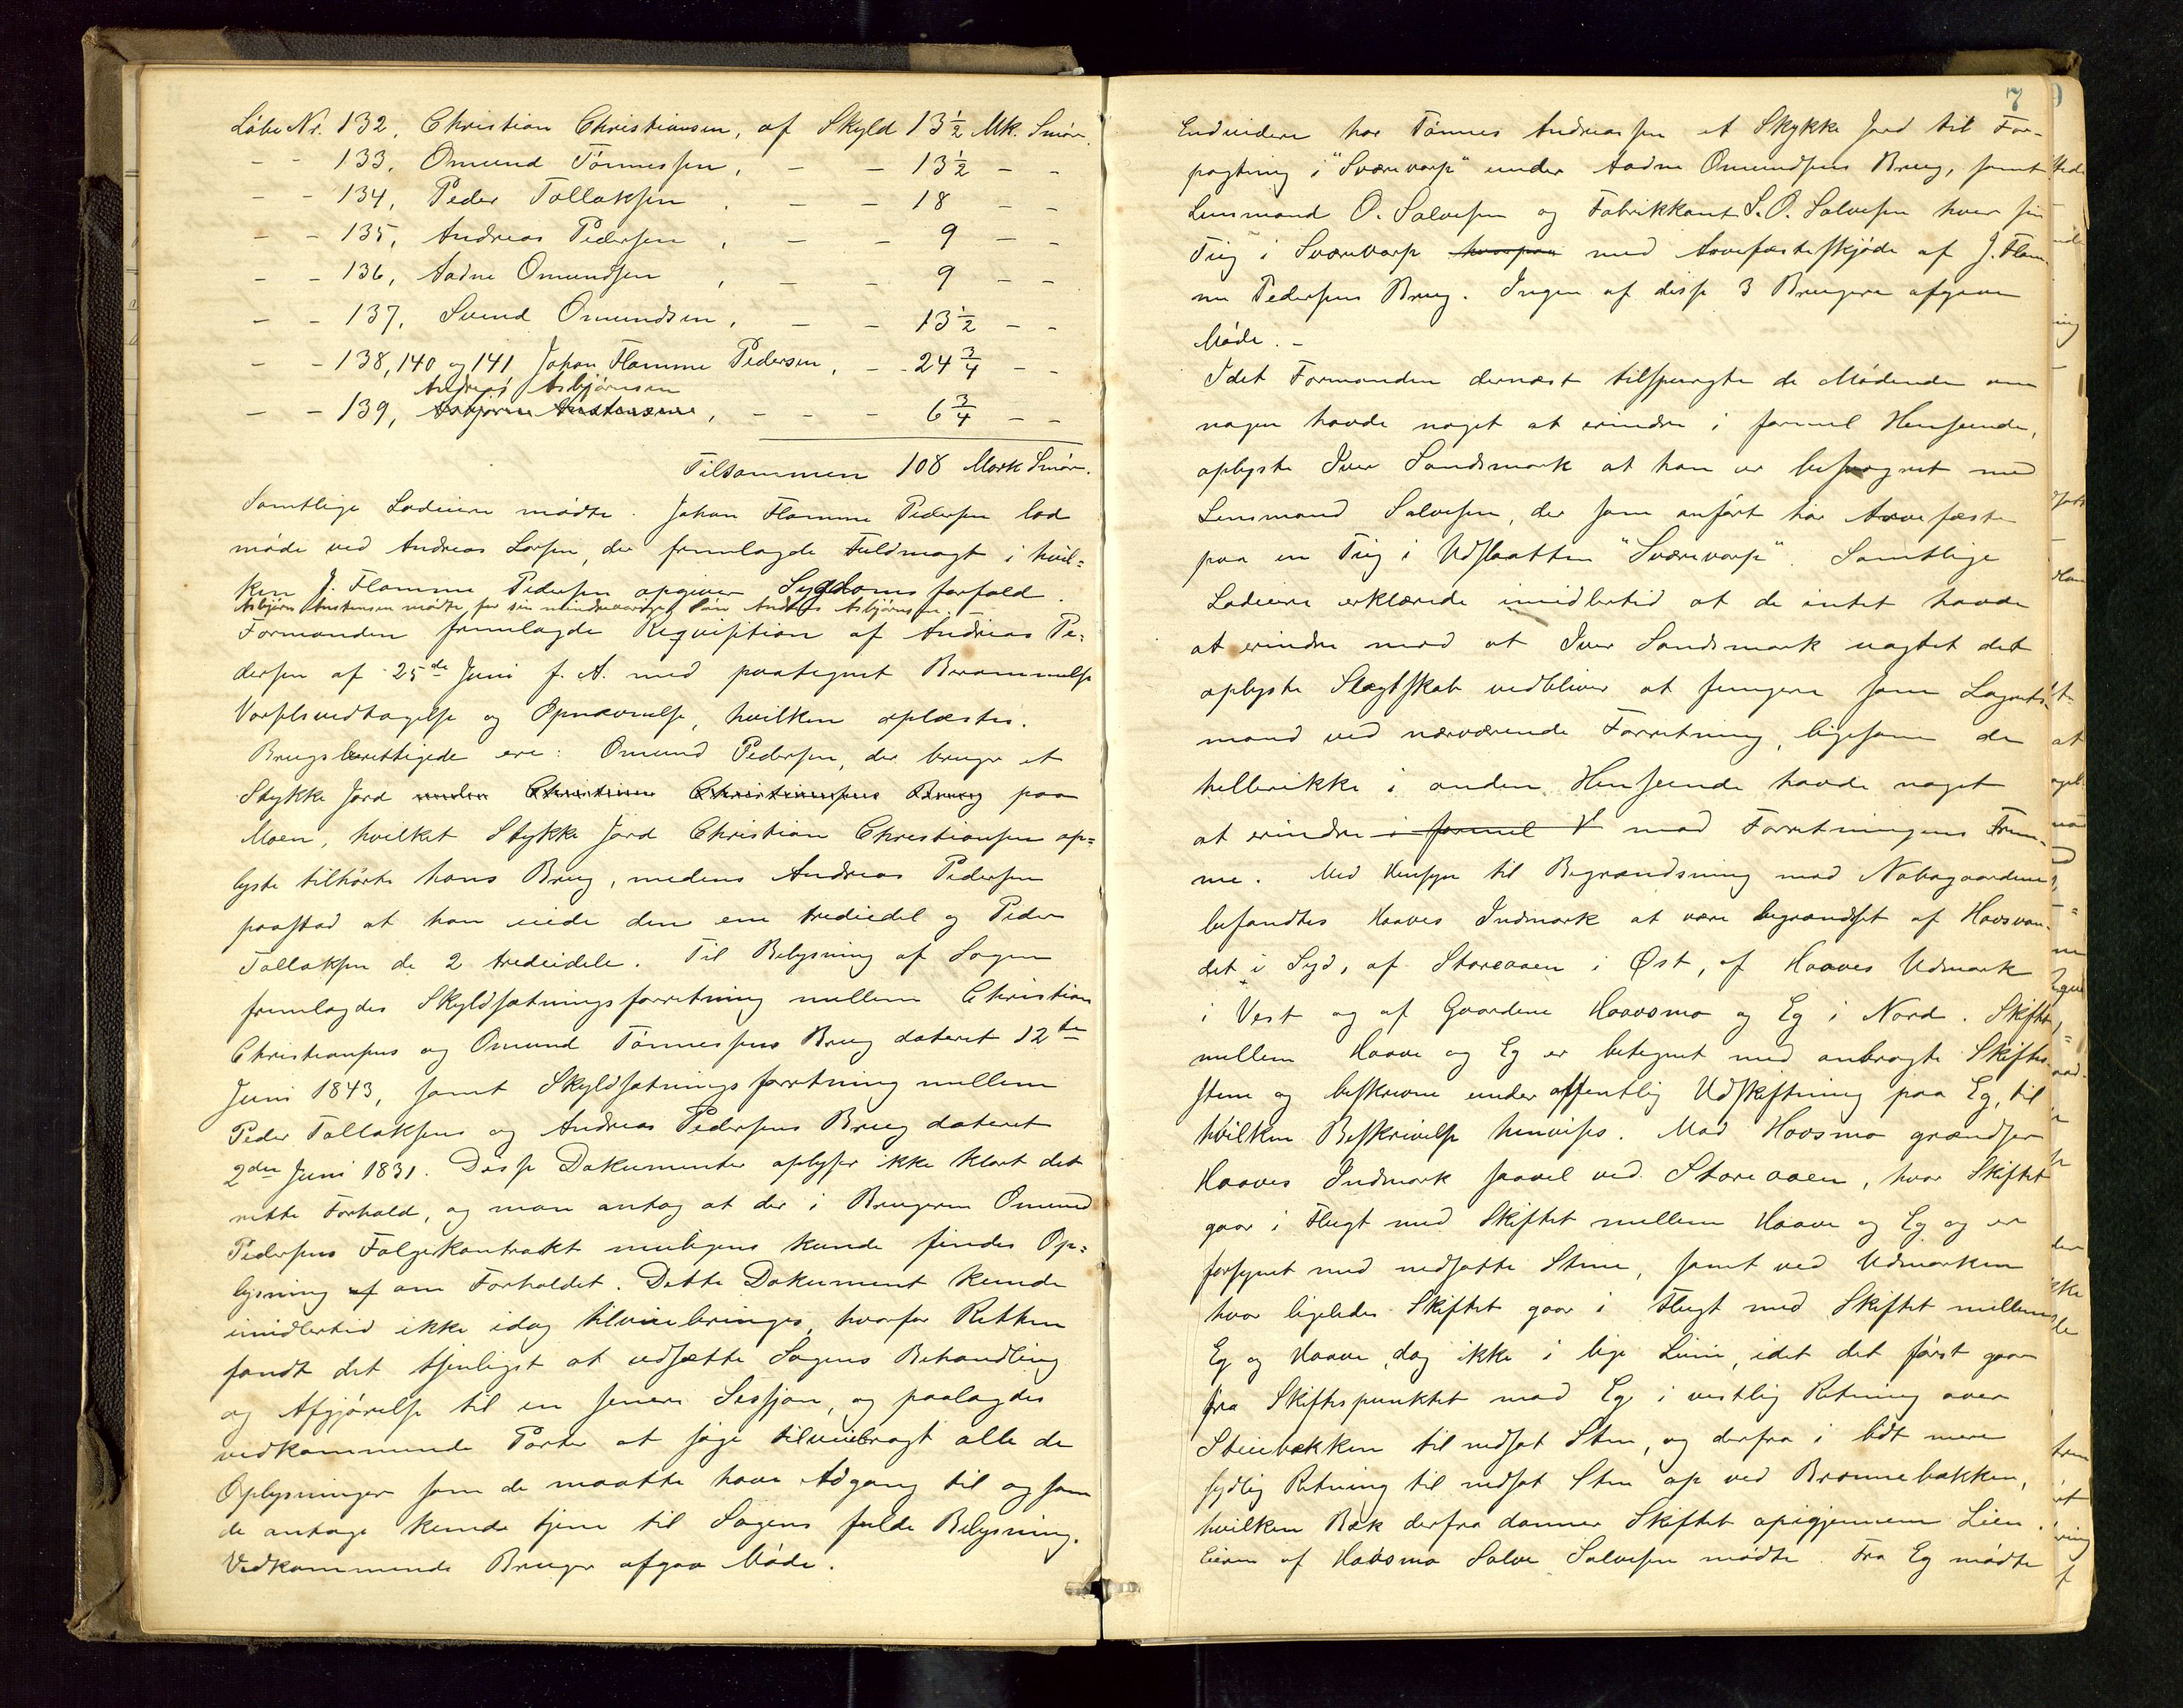 Löbe Nr. 132, Christian Christiansen, af Skyld 13½ Mk. Smör.
- - 133, Omund Tönnessen, - - 13½ - -
- - 134, Peder Tollaksen, - - 18 - -
- - 135, Andreas Pedersen, - - 9 - -
- - 136, Aadne Omundsen, - - 9 - -
- - 137, Svend Omundsen, - - 13½ - -
- - 138, 140 og 141 Johan Flamme Pedersen, - - 24¾ - -
Andreas Asbjörnsen
- - 139, Asbjörn Austensen, - - - 6¾ - -
Tilsammen 108 Mark Smör.
Samtlige Lodeiere mödte. Johan Flamme Pedersen lod
möde ved Andreas Larsen, der fremlagde Fuldmagt i hvil-
ken J. Flamme Pedersen opgiver Sygdomsforfald.
Asbjörn Austensen mödte for sin mindreaarige Sön Andreas Asbjörnsen. -
Formanden fremlagde Reqvisition af Andreas Pe-
dersen af 25de Juni f. A. med paategnet Berammelse
Varselsvedtagelse og Opnævnelse, hvilken oplæstes.
Brugsberettigede ere: Omund Pedersen, der bruger et
Stykke Jord under Christian Christiansens Brug paa
Moen, hvilket Stykke Jord Christian Christiansen op-
lyste tilhörte hans Brug, medens Andreas Pedersen
paastod at han eiede den ene trediedel og Peder
Tollaksen de 2 trediedele. Til Belysning af Sagen
fremlagdes Skyldsætningsforretning mellem Christian
Christiansens og Omund Tönnessens Brug dateret 12te
Juni 1843, samt Skyldsætningsforretning mellem
Peder Tollaksens og Andreas Pedersens Brug dateret
2den Juni 1831. Disse Dokumenter oplyser ikke klart det
rette Forhold, og man antog at der i Brugeren Omund
Pedersens Fölgekontrakt muligens kunde findes Op-
lysning af om Forholdet. Dette Dokument kunde
imidlertid ikke idag tilveiebringes, hvorfor Retten
fandt det tjenligst at udsætte Sagens Behandling
og Afgjörelse til en senere Session, og paalagdes
vedkommende Parter at söge tilveiebragt alle de
Oplysninger som de maatte have Adgang til og som
de antoge kunde tjene til Sagens fulde Belysning.
Vedkommende Bruger afgav Möde.
7
Endvidere har Tönnes Andreassen et Stykke Jord til For-
pagtning i "Sværevarp" under Aadne Omundsens Brug, samt
Lensmand O. Salvesen og Fabrikkant S. O. Salvesen hver sin
Teig i Sværevarp hvorpaa med Arvefæsteskjöde af J. Flam-
me Pedersens Brug. Ingen af disse 3 Brugere afgave
Möde. -
Idet Formanden dernæst tilspurgte de Mödende om
nogen havde noget at erindre i formel Henseende,
oplyste Iver Sandsmark at han er besvogret med
Lensmand Salvesen, der som anfört har Arvefæste
paa en Teig i Udslaatten "Sværevarp". Samtlige
Lodeiere erklærede imidlertid at de intet havde
at erindre mod at Iver Sandsmark uagtet det
oplyste Slægtskab vedbliver at fungere som Lagrets-
mand ved nærværende Forretning, ligesom de
hellerikke i anden Henseende havde noget
at erindre i formel V mod Forretningens Frem-
me. Med Hensyn til Begrændsning mod Nabogaardene
befandtes Haaves Indmark at være begrændset af Haavsvan-
det i Syd, af Storeaaen i Øst, af Haaves Udmark
i Vest og af Gaardene Haavsmo og Eg i Nord. Skiftet
mellem Haave og Eg er betegnet med anbragte Skiftes-
stene og beskreven under offentlig Udskiftning paa Eg, til
hvilken Beskrivelse henvises. Mod Haavsmo grændser
Haaves Indmark saavel ved Storeaaen, hvor Skiftet
gaar i Flugt med Skiftet mellem Haave og Eg og er
forsynet med nedsatte Stene, samt ved Udmarken
hvor ligeledes Skiftet gaar i Flugt med Skiftet mellem
Eg og Haave, dog ikke i lige Linie, idet det först gaar
fra Skiftespunktet mod Eg i vestlig Retning over
Steinbækken til nedsat Sten, og derfra i lidt mere
sydlig Retning til nedsat Sten op ved Brönnebækken,
hvilken Bæk derfra danner Skiftet opigjennem Lien.
Eieren af Haavsmo Salve Salvesen mödte. Fra Eg mödte